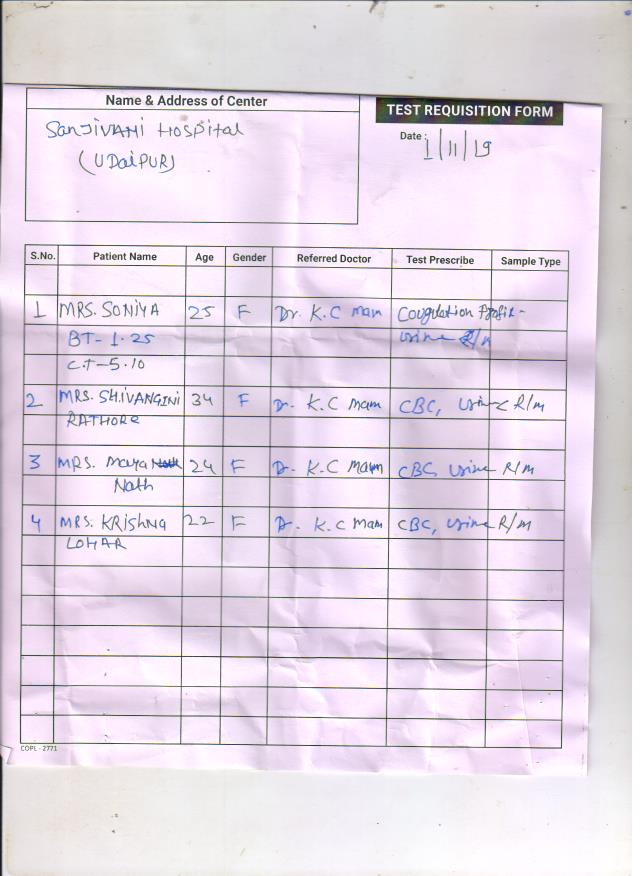 Name & Address of Center
TEST REQUISITION FORM
SanJIVANI HOSPital
(UDaiPUR)
Date : 1/11/19
S.No. Patient Name Age Gender Referred Doctor Test Prescribe Sample Type
1 MRS. SONIYA 25 F Dr. K.C Mam Cougulation Profil-
BT-1.25 urine R/m
C.T-5.10
2 MRS. SHIVANGINI 34 F Dr. K.C Mam CBC, Urine R/m
RATHORe
3 MRS. Maya 24 F Dr. K.C Mam CBC, Urine R/m
Nath
4 MRS. KRishna 22 F Dr. K.C Mam CBC, Urine R/m
LOHAR
COPL - 2771